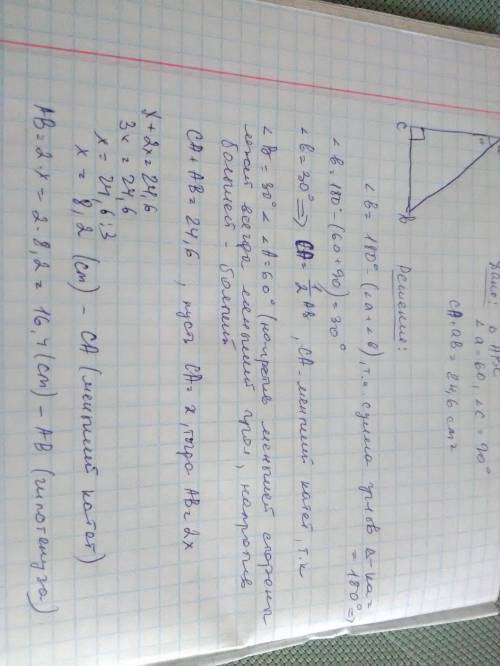 Дано: △ABC
∠a=60, ∠C=90°
CA+aB=24,6 см²
a
C
B
Решение:
∠B=180°-(∠a+∠C), т.к сумма углов △-ка=
=180°⇒
∠B=180°-(60+90)=30°
∠B=30°⇒ CA=1/2 AB, CA-меньший катет, т.к
∠B=30°<∠A=60° (напротив меньшей стороны
лежит всегда меньший угол, напротив
большей - больший
CA+AB=24,6, пусть CA=x, тогда AB=2x
x+2x=24,6
3x=24,6
x=24,6:3
x=8,2 (см) - CA (меньший катет)
AB=2·x=2·8,2=16,4(см)-AB (гипотенуза)